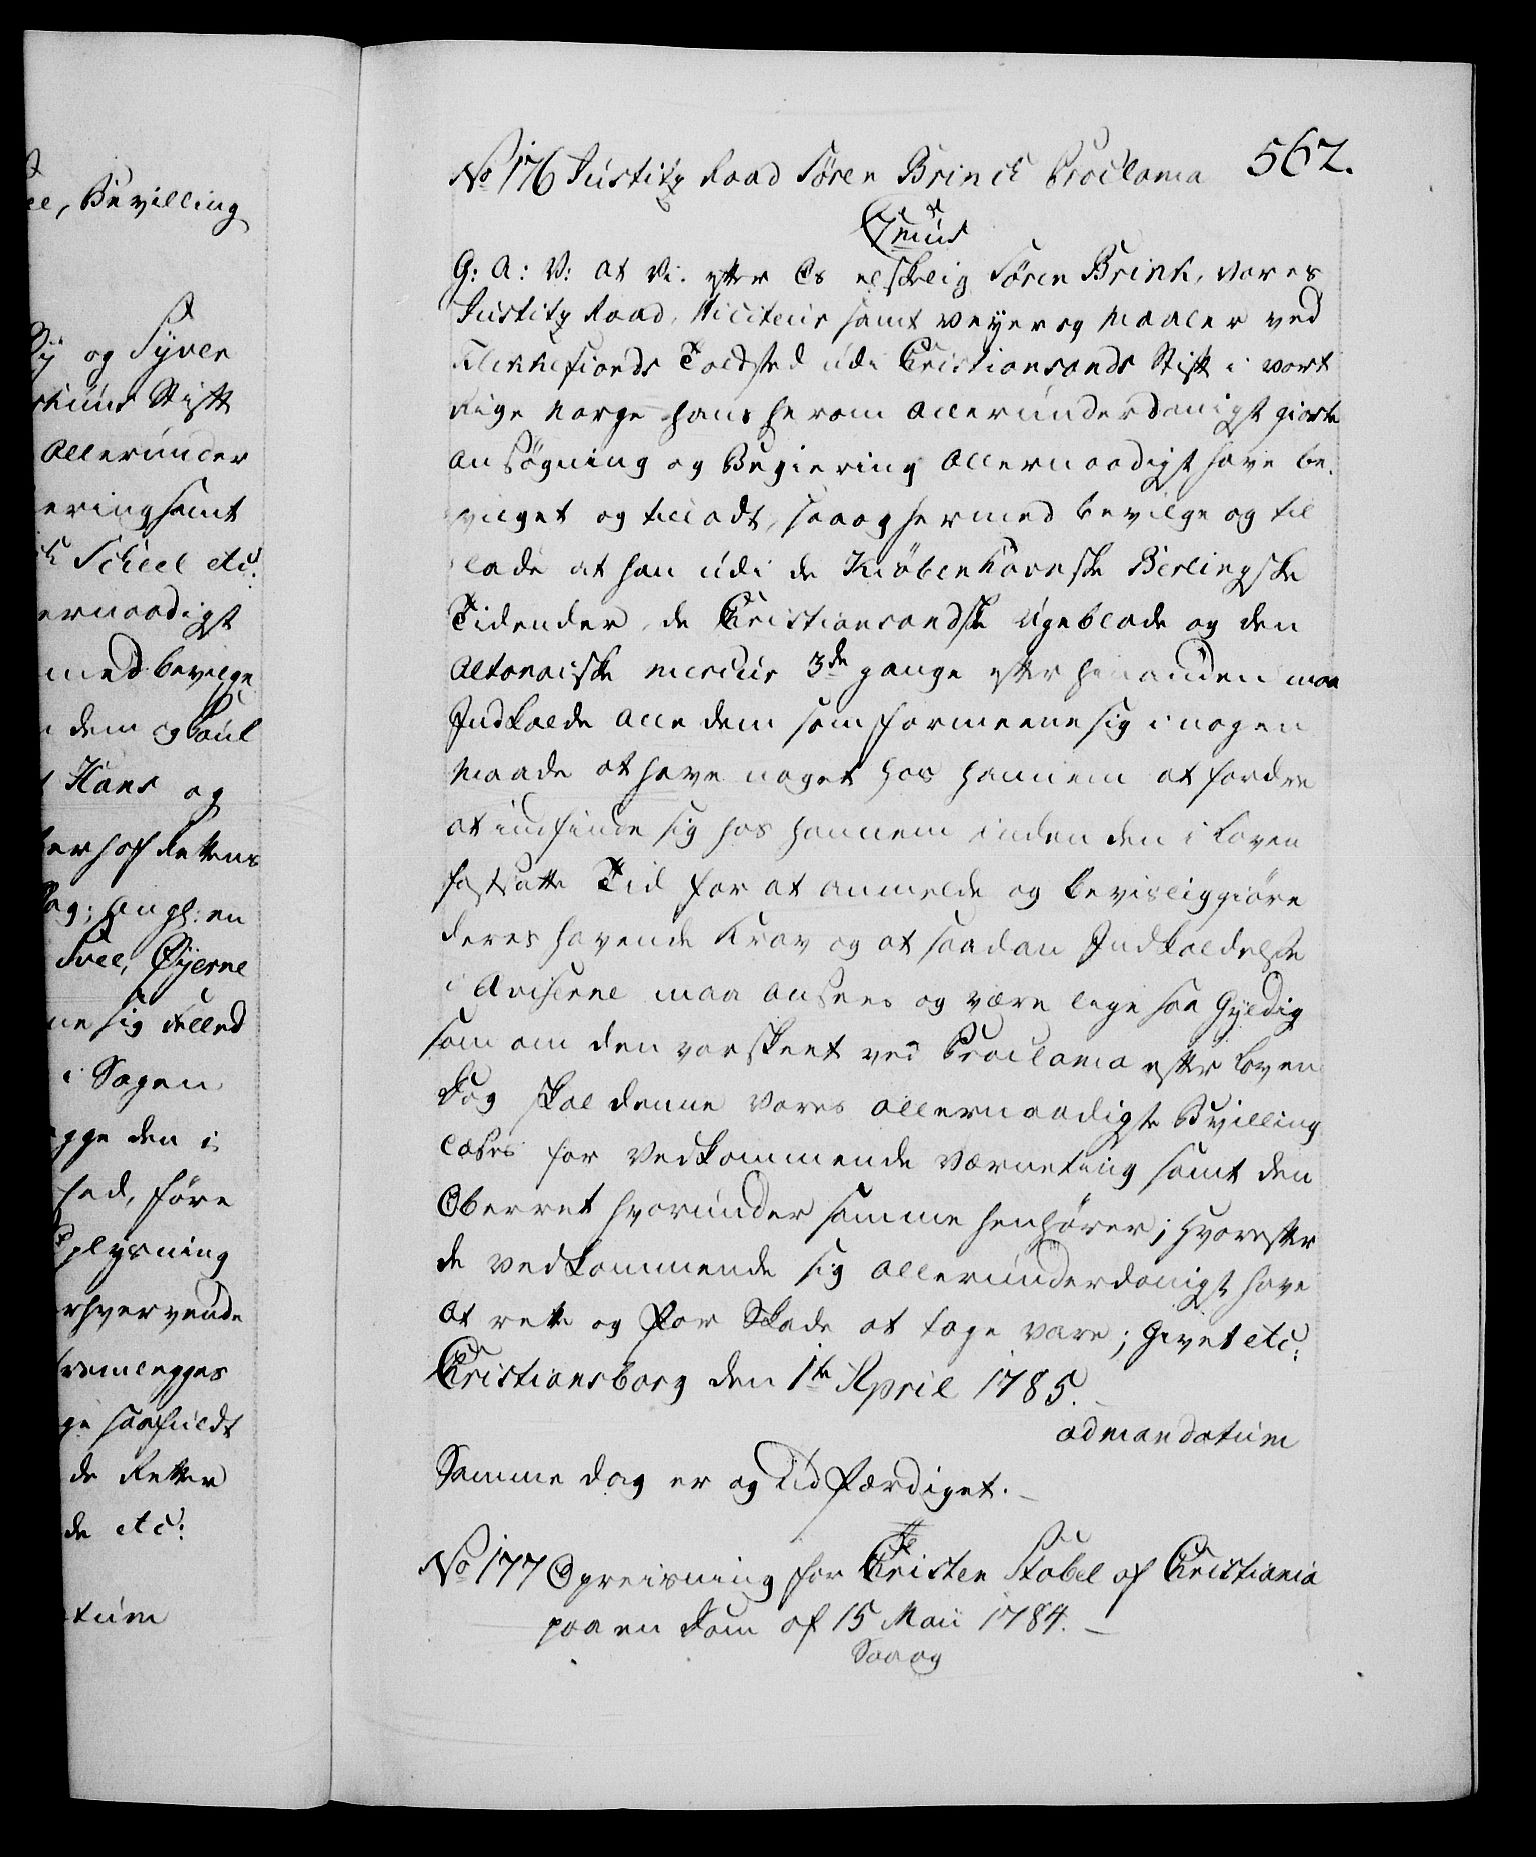 ee, Bevilling
Ry og Syver
rhuus Stift
allerunder
ering samt
ch Scheel etc:
ernaadigst
med bevilge
dem og Poul
Hans og
Oberhof Rettens
Dag; angl: en
Svee, Øyerne
ne sig Felled
i Sagen
gge den i
hed, føre
Oplysning
rhvervende
fremlegges
ge saafuldt
de Retter
de etc:
atum
562.
No 176 Justitz Raad Søren Brinch Proclama
Cmus
G: A: V: at Vi efter Os elskelig Søren Brink, vores
Justitz Raad, Viciteur samt Veyer og Maaler ved
Flekkefiords Toldsted udi Christiansands Stift i vort
Rige Norge hans herom allerunderdanigst giorte
ansøgning og Begiering allernaadigst have be¬
vilget og tilladt, saa og hermed bevilge og til
lade at han udi de Kiøbenhavnske Berlingske
Tidender, de Christiansandske Ugeblade og den
Altonaiske mercur 3de gange efter hinanden maa
Indkalde alle dem som formeene sig i nogen
Maade at have noget hos hannem at fordre
at indfinde sig hos hannem inden den i Loven
fastsatte Tid for at anmelde og bevisliggiøre
deres havende Krav og at saadan Indkaldelse
i Aviserne maa ansees og være lige saa Gyldig
som om den var skeet ved Proclama efter Loven
dog skal denne vores allernaadigste Bevilling
læses for Vedkommende Værneting samt den
Oberret hvorunder samme henhører; hvorefter
de vedkommende sig allerunderdanigst have
at rette og for Skade at tage vare; Givet etc:
Christiansborg den 1te April 1785.
ad mandatum
Samme dag er og Udfærdiget.
No 177 Opreisning for Christen Stabel af Christiania
paa en Dom af 15 Maii 1784.
Saa og